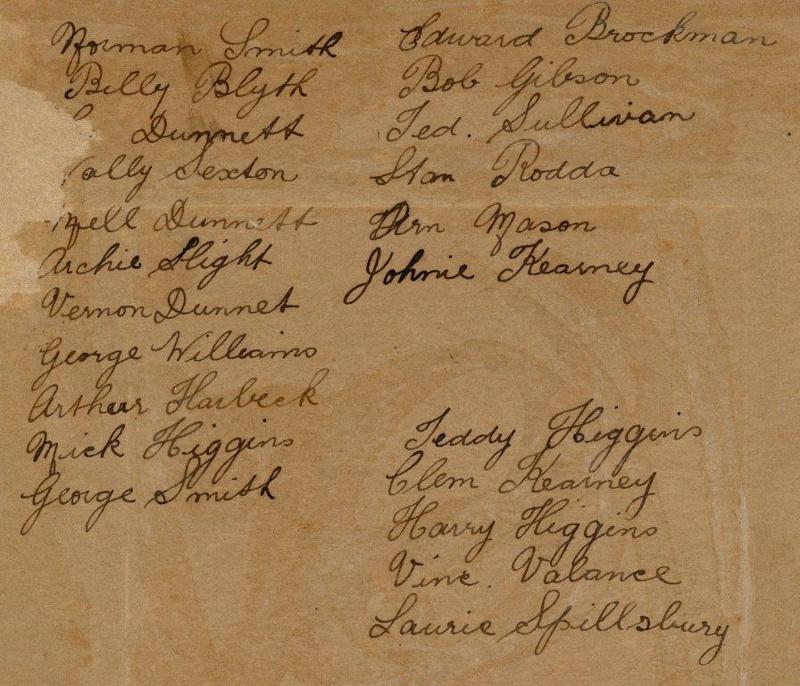 Norman Smith
Billy Blyth
Dunnett
ally Sexton
Nell Dunnett
Archie Slight
Vernon Dunnet
George Williams
Arthur Harbeck
Mick Higgins
George Smith
Edward Brockman
Bob Gibson
Ted. Sullivan
Stan Rodda
Arn Mason
Johnie Kearney
Teddy Higgins
Clem Kearney
Harry Higgins
Vinc. Valance
Laurie Spillsbury